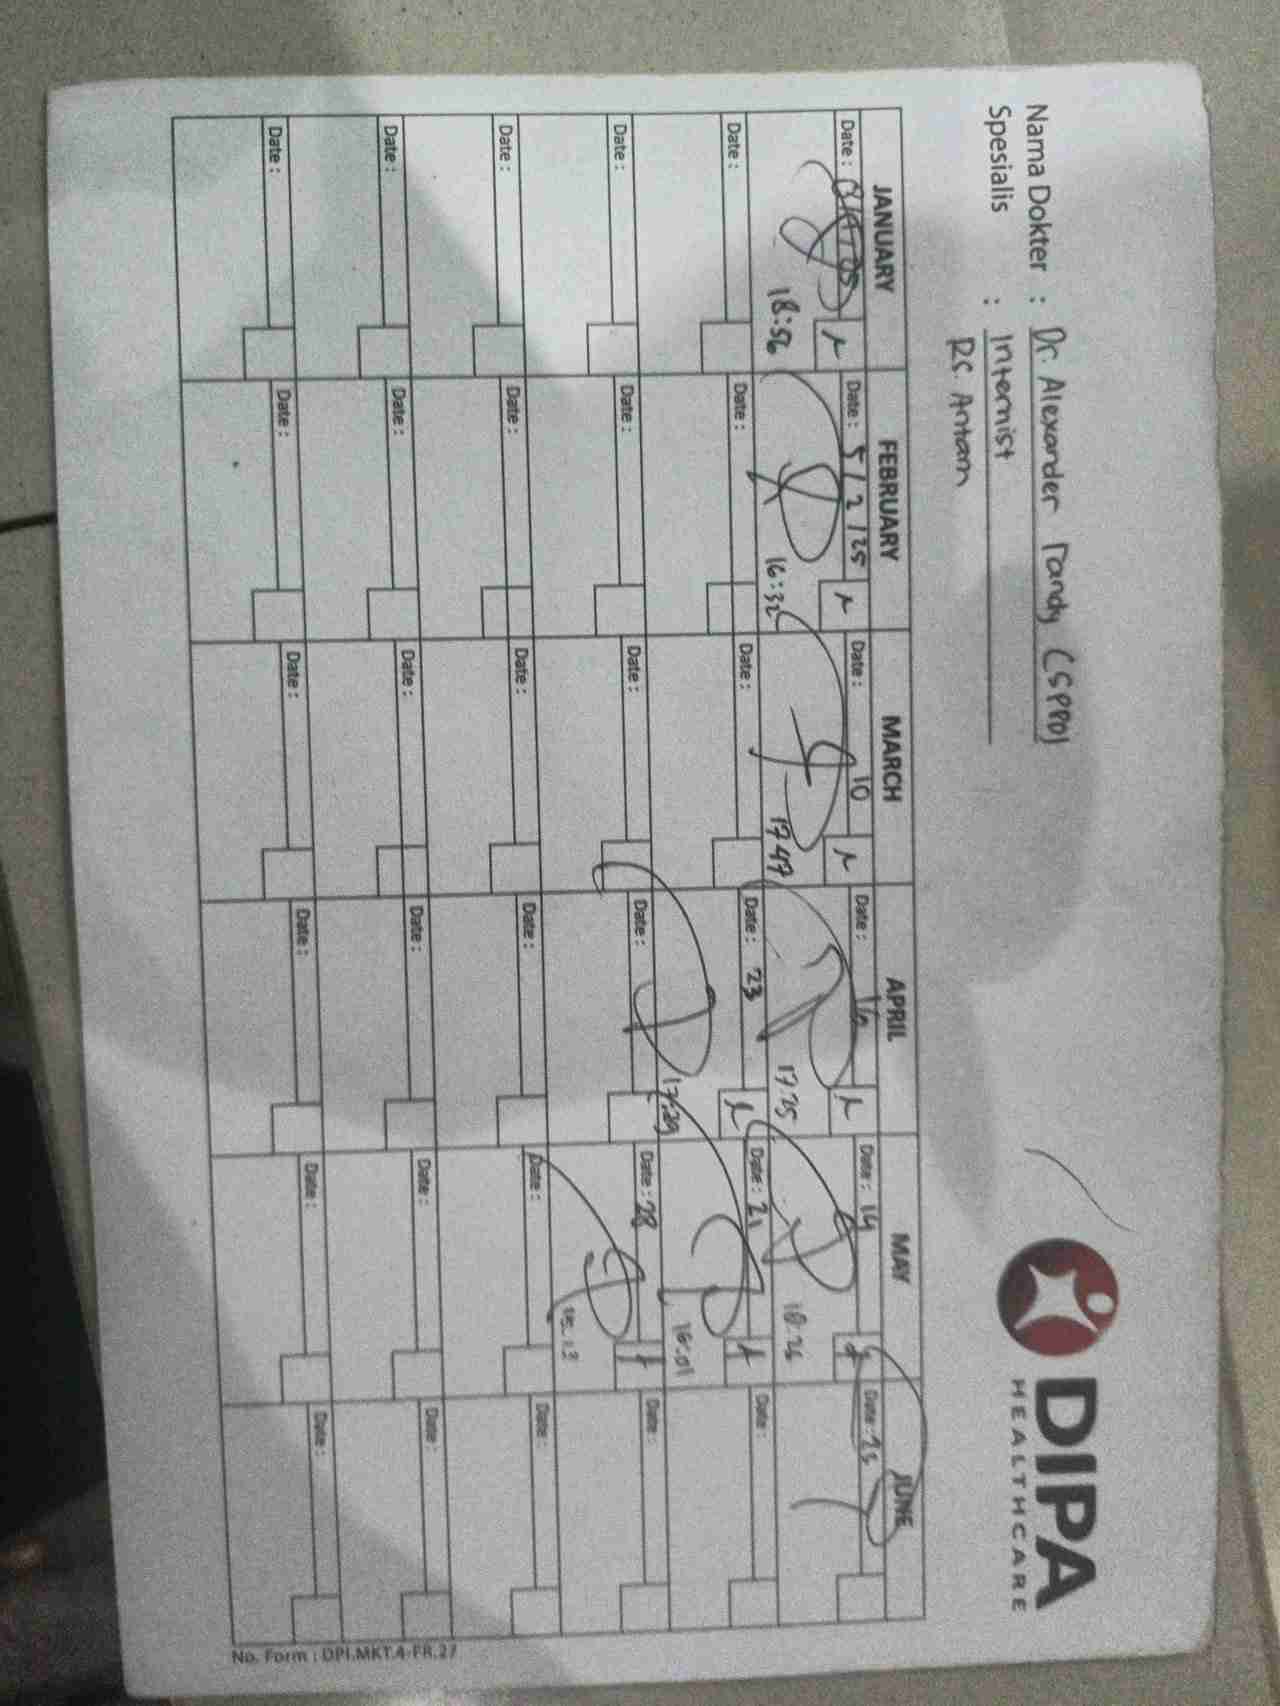 DIPA
HEALTHCARE
Nama Dokter : Dr. Alexander Tandy (SPPD)
Spesialis : Internist
RS. Antam
JANUARY FEBRUARY MARCH APRIL MAY JUNE
Date : Date : 5/2/25 Date : 10 Date : 16 Date : 14 Date : 25
18:56 16:32 1747 17.25 18.26
Date : Date : Date : Date : 23 Date : 21 Date :
17.29 16.01
Date : Date : Date : Date : Date : 28 Date :
Date : Date : Date : Date : Date : Date :
Date : Date : Date : Date : Date : Date :
Date : Date : Date : Date : Date : Date :
No. Form : DPI.MKT.4-FR.27